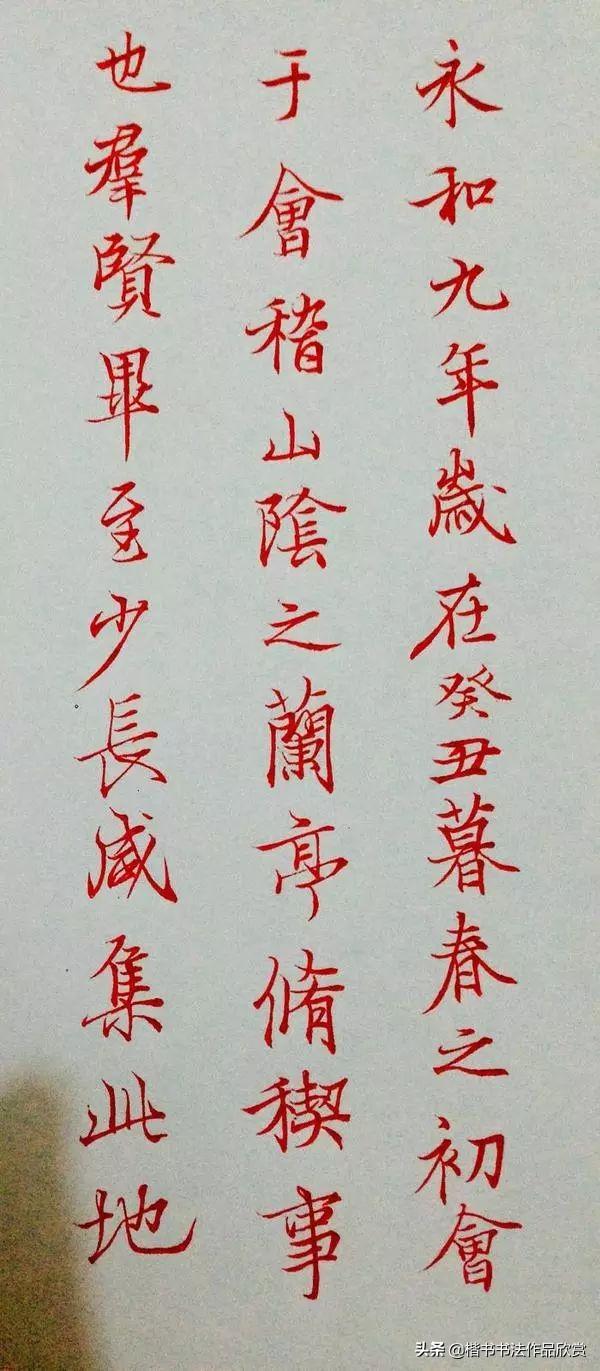 永和九年歲在癸丑暮春之初會
于會稽山陰之蘭亭脩稧事
也羣賢畢至少長咸集此地
头条@楷书书法作品欣赏